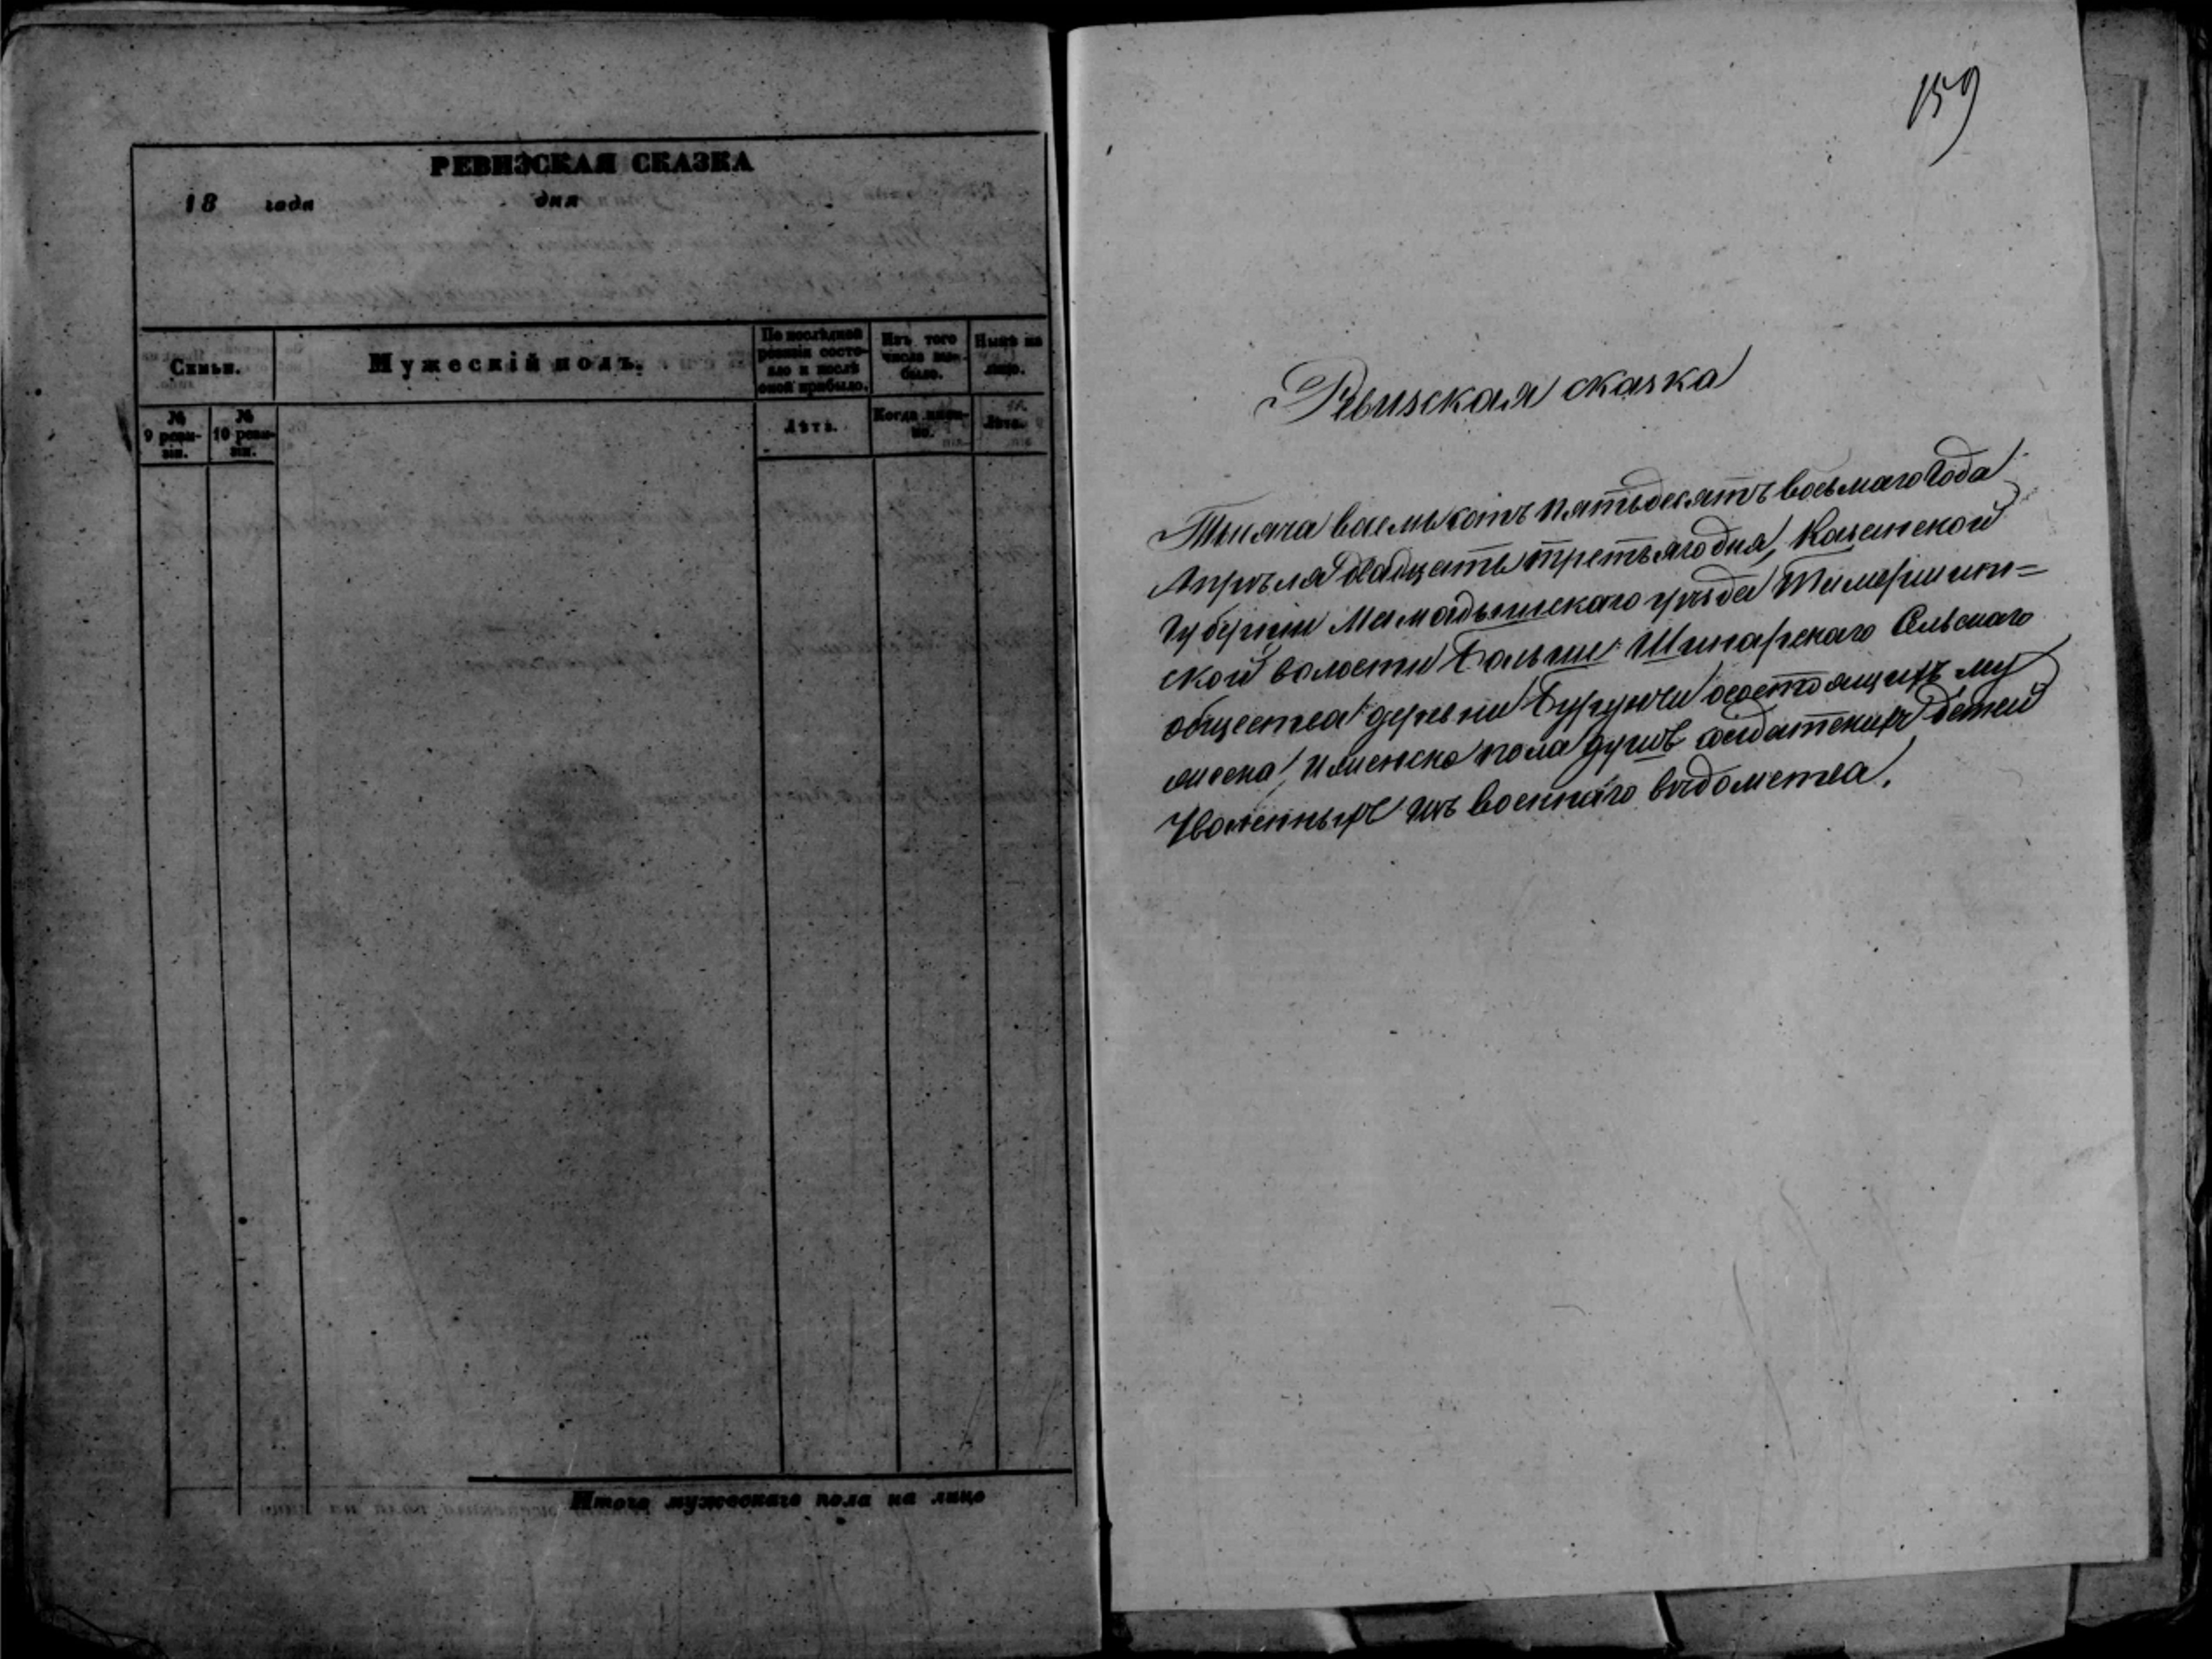 РЕВИЗСКАЯ СКАЗКА
18 года дня
Семьи.
Мужескій полъ.
По послѣдней ревизіи состояло и послѣ оной прибыло.
Изъ того числа выбыло.
Нынѣ на лицо.
№ 9 ревизіи.
№ 10 ревизіи.
Лѣтъ.
Когда именно.
Лѣта.
Итого мужескаго пола на лицо
159
Ревизская сказка
Тысяча восемьсотъ пятьдесятъ восьмаго года
Апрѣля двадцать третьяго дня, Казанской
Губерніи Мамадышскаго уѣзда Тимершин=
ской волости Больше Шинарскаго Сельскаго
общества деревни Бурунчи о состоящихъ му
жеска, и женска пола душъ солдатскихъ детей
Уволенныхъ изъ военнаго вѣдомства.